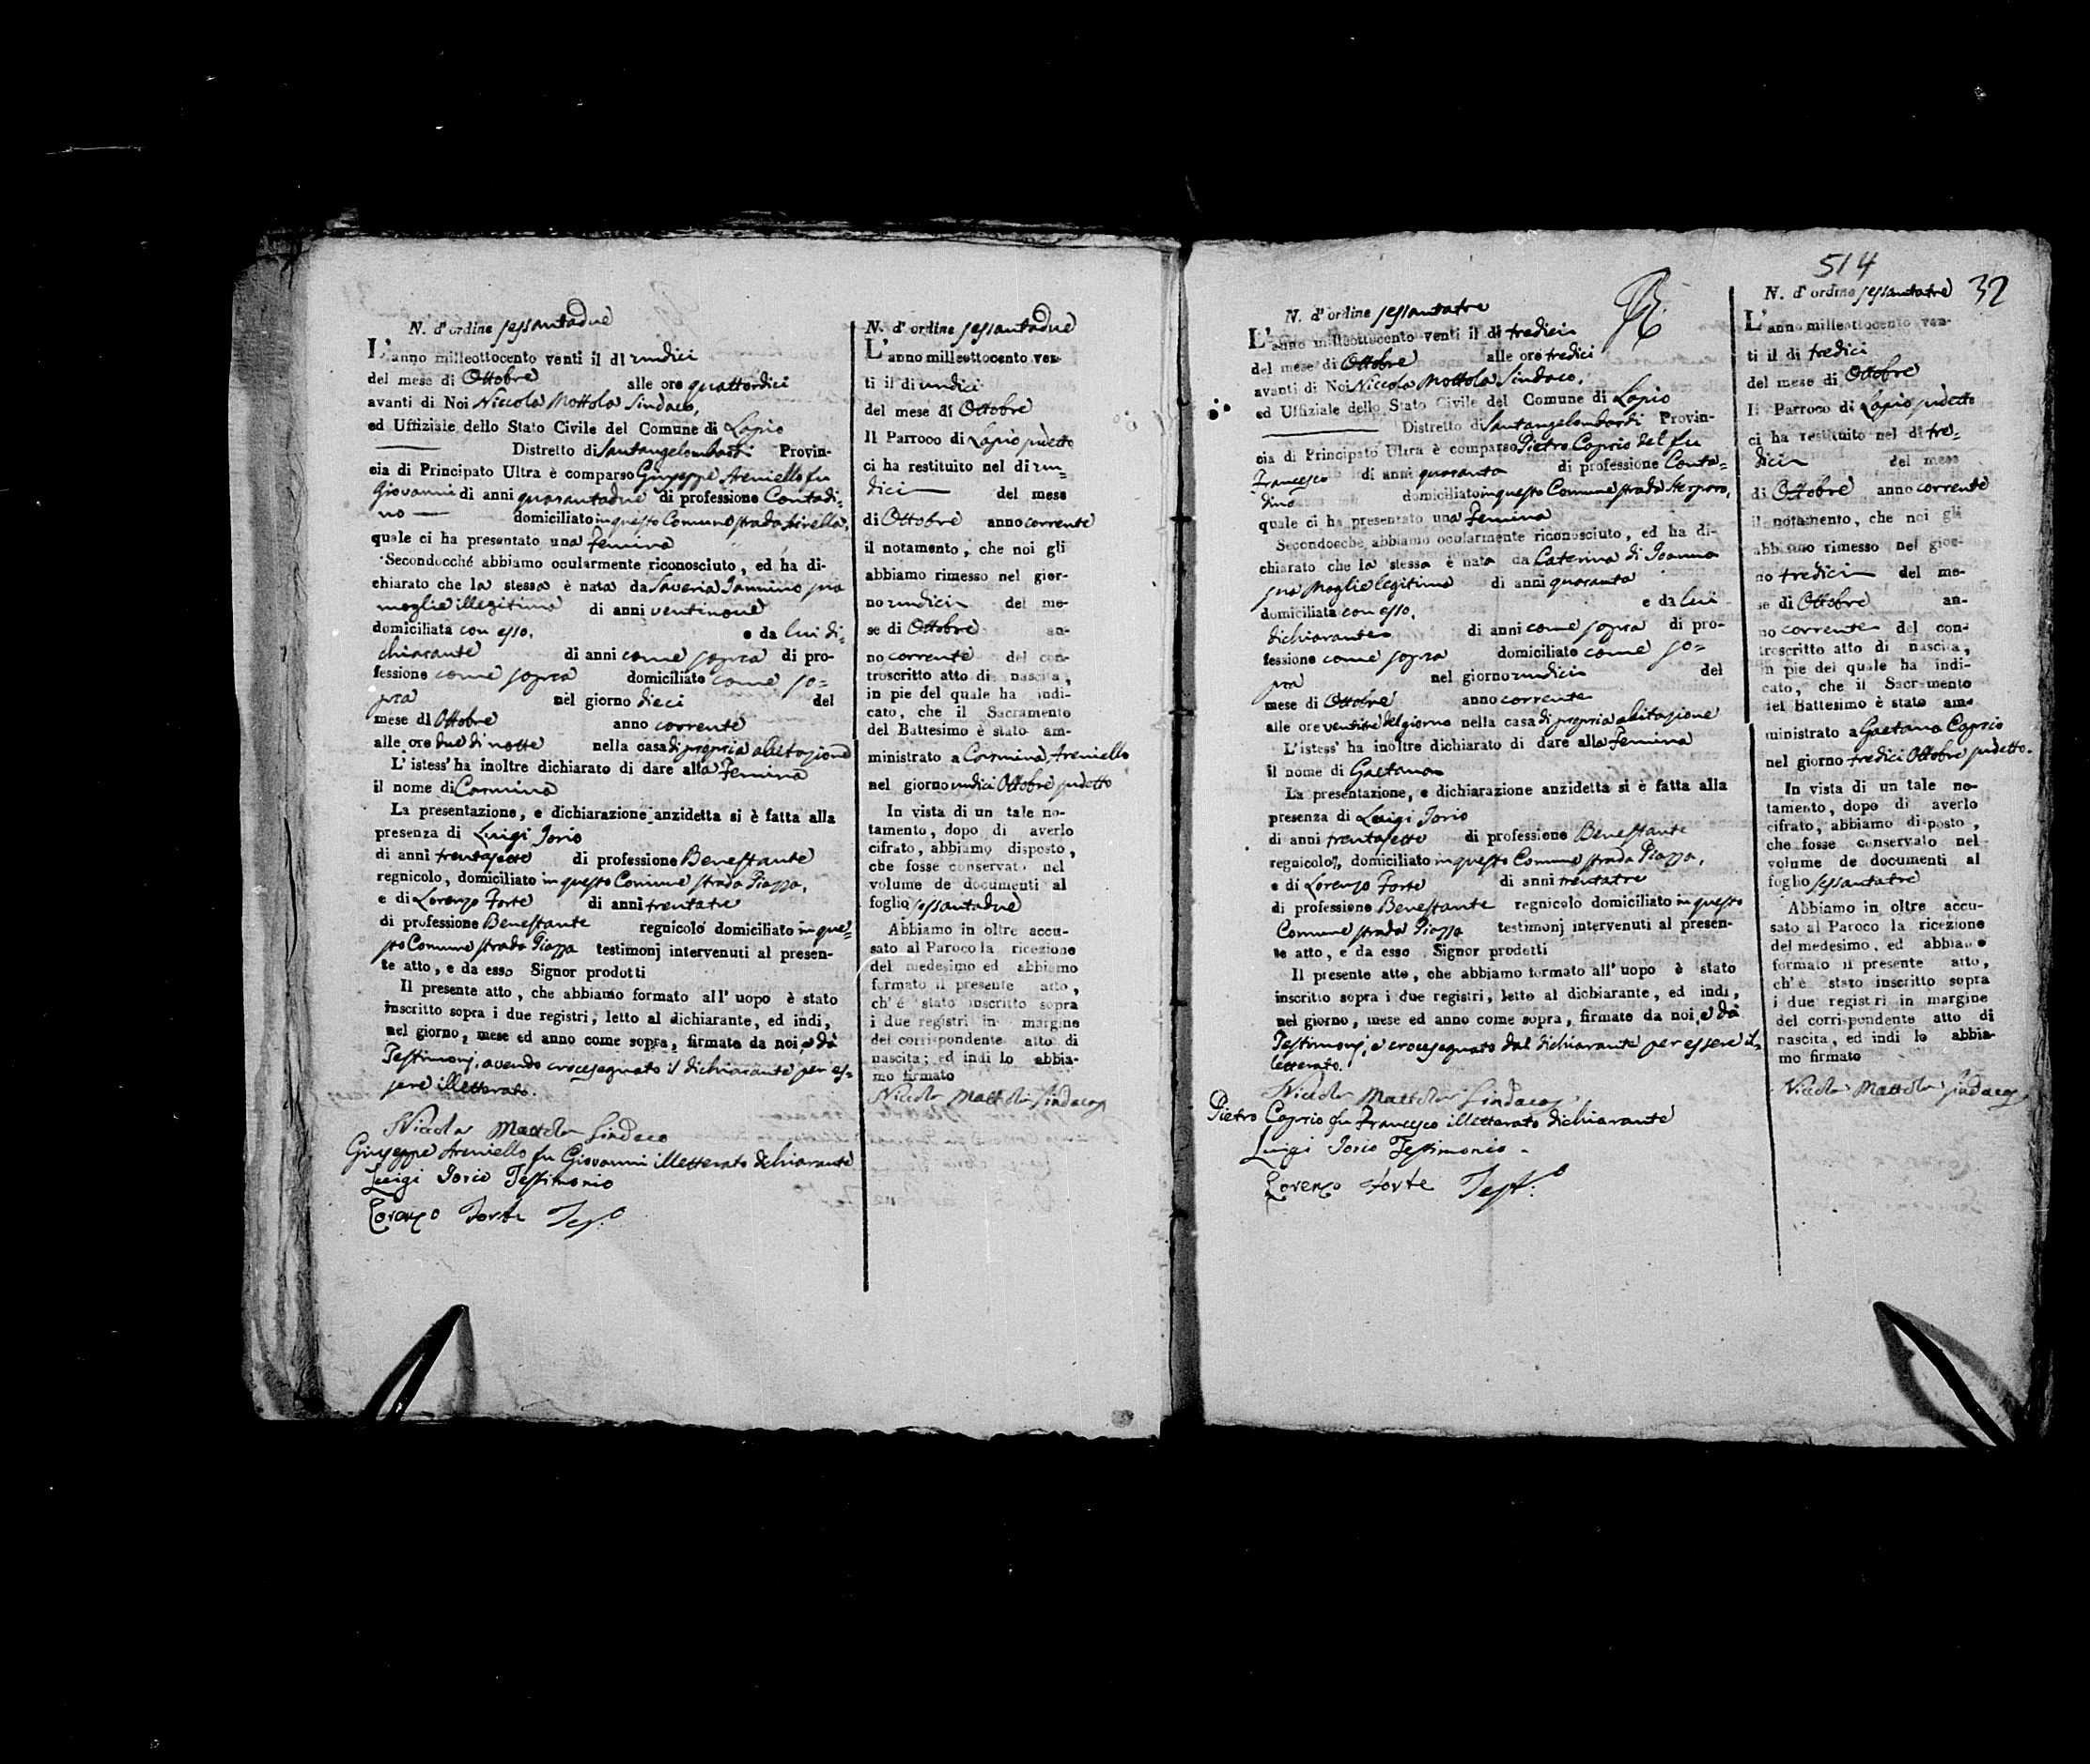 N. d'ordine sessantadue
L'anno milleottocento venti il di undici
del mese di Ottobre alle ore quattordici
avanti di Noi Niccola Mottola Sindaco,
ed Uffiziale dello Stato Civile del Comune di Lapio
Distretto di Santangelombardi Provin-
cia di Principato Ultra è comparso Giuseppe Areniello fu
Giovanni di anni quarantadue di professione Contadi=
no domiciliato in questo Comune strada
quale ci ha presentato una Femina
Secondocché abbiamo ocularmente riconosciuto, ed ha di-
chiarato che la stessa è nata da Saveria Iannino sua
moglie illegitima di anni ventinove
domiciliata con esso. e da lui di=
chiarante di anni come sopra di pro-
fessione come sopra domiciliato come so=
pra nel giorno dieci del
mese di Ottobre anno corrente
alle ore due di notte nella casa di propria abitazione
L'istess' ha inoltre dichiarato di dare alla Femina
il nome di Carmina
La presentazione, e dichiarazione anzidetta si è fatta alla
presenza di Luigi Iorio
di anni trentasette di professione Benestante
regnicolo, domiciliato in questo Comune strada Piazza,
e di Lorenzo Forte di anni trentatre
di professione Benestante regnicolo domiciliato in que=
sto Comune strada Piazza testimonj intervenuti al presen-
te atto, e da esso Signor prodotti
Il presente atto, che abbiamo formato all' uopo è stato
inscritto sopra i due registri, letto al dichiarante, ed indi,
nel giorno, mese ed anno come sopra, firmato da noi, e da
Testimonj, avendo crocesegnato il dichiarante per es=
sere illetterato.
Niccola Mottola Sindaco
Giuseppe Areniello fu Giovanni illetterato dichiarante
Luigi Iorio Testimonio
Lorenzo Forte Tes.o
N. d'ordine sessantadue
L'anno milleottocento ven-
ti il di undici
del mese di Ottobre
Il Parroco di Lapio sudetto
ci ha restituito nel di un=
dici del mese
di Ottobre anno corrente
il notamento, che noi gli
abbiamo rimesso nel gior-
no undici del me-
se di Ottobre an-
no corrente del con-
troscritto atto di nascita,
in pie del quale ha indi-
cato, che il Sacramento
del Battesimo è stato am-
ministrato a Carmina Areniello
nel giorno undici Ottobre sudetto
In vista di un tale no-
tamento, dopo di averlo
cifrato, abbiamo disposto,
che fosse conservato nel
volume de documenti al
foglio sessantadue
Abbiamo in oltre accu-
sato al Paroco la ricezione
del medesimo ed abbiamo
formato il presente atto,
ch' é stato inscritto sopra
i due registri in margine
del corrispondente atto di
nascita; ed indi lo abbia-
mo firmato
Niccola Mottola Sindaco
N. d'ordine sessantatre
L'anno milleottocento venti il di tredici
del mese di Ottobre alle ore tredici
avanti di Noi Niccola Mottola Sindaco,
ed Uffiziale dello Stato Civile del Comune di Lapio
Distretto di Santangelombardi Provin-
cia di Principato Ultra è comparso Pietro Caprio del fu
Francesco di anni quaranta di professione Conta=
dino domiciliato in questo Comune strada
quale ci ha presentato una Femina
Secondocche abbiamo ocularmente riconosciuto, ed ha di-
chiarato che la stessa è nata da Caterina di Ioanna
sua Moglie legitima di anni quaranta
domiciliata con esso. e da lui
dichiarante di anni come sopra di pro-
fessione come sopra domiciliato come so=
pra nel giorno undici del
mese di Ottobre anno corrente
alle ore ventitre del giorno nella casa di propria abitazione
L'istess' ha inoltre dichiarato di dare alla Femina
il nome di Gaetana
La presentazione, e dichiarazione anzidetta si è fatta alla
presenza di Luigi Iorio
di anni trentasette di professione Benestante
regnicolo, domiciliato in questo Comune strada Piazza,
e di Lorenzo Forte di anni trentatre
di professione Benestante regnicolo domiciliato in questo
Comune strada Piazza testimonj intervenuti al presen-
te atto, e da esso Signor prodotti
Il presente atto, che abbiamo formato all' uopo è stato
inscritto sopra i due registri, letto al dichiarante, ed indi,
nel giorno, mese ed anno come sopra, firmato da noi, e da
Testimonj, e crocesegnato dal dichiarante per essere il=
letterato.
Niccola Mottola Sindaco
Pietro Caprio fu Francesco illetterato dichiarante
Luigi Iorio Testimonio
Lorenzo Forte Test.o
514
32
N. d'ordine sessantatre
L'anno milleottocento ven-
ti il di tredici
del mese di Ottobre
Il Parroco di Lapio sudetto
ci ha restituito nel di tre=
dici del mese
di Ottobre anno corrente
il notamento, che noi gli
abbiamo rimesso nel gior-
no tredici del me-
se di Ottobre an-
no corrente del con-
troscritto atto di nascita,
in pie del quale ha indi-
cato, che il Sacramento
del Battesimo è stato am-
ministrato a Gaetana Caprio
nel giorno tredici Ottobre sudetto.
In vista di un tale no-
tamento, dopo di averlo
cifrato, abbiamo disposto,
che fosse conservato nel
volume de documenti al
foglio sessantatre
Abbiamo in oltre accu-
sato al Paroco la ricezione
del medesimo, ed abbiamo
formato il presente atto,
ch' è stato inscritto sopra
i due registri in margine
del corrispondente atto di
nascita, ed indi lo abbia-
mo firmato
Niccola Mottola Sindaco